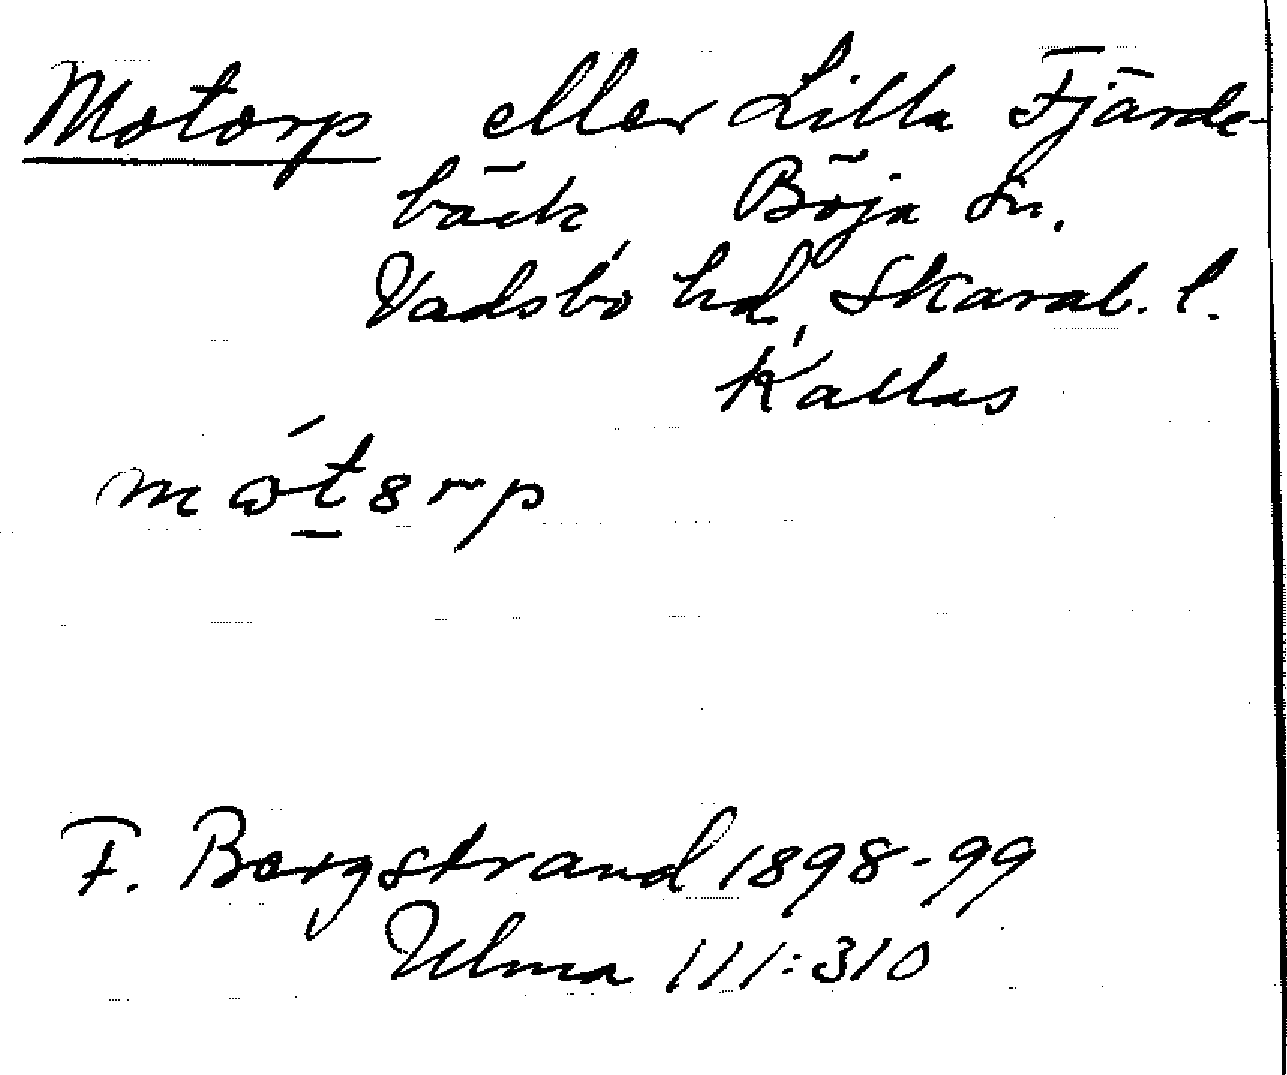 Motorp eller Lilla Fjärde-
bäck, Böja sn.
Vadsbo hd, Skarab. l.
Kallas
mótsrp
F. Bergstrand 1898-99
Ulma 111:310